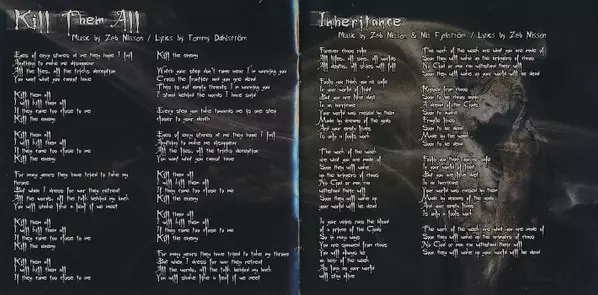 Kill Them All
Music by Zeb Nilsson / Lyrics by Tommy Dahlström
Eyes of envy stares at me they hope I fall
Anything to make me disappear
All the lies, all the tricks deception
You want what you cannot have
Kill them all
I will kill them all
If they come too close to me
Kill the enemy
Kill them all
I will kill them all
If they come too close to me
Kill the enemy
For many years they have tried to take my
throne
But when I dress for war they retreat
All the words, all the talk behind my back
You will shake like a leaf if we meet
Kill them all
I will kill them all
If they come too close to me
Kill the enemy
Kill them all
I will kill them all
If they come too close to me
Kill the enemy
Watch your step don't come near I'm warning you
Cross the frontier and you are dead
This is not empty threats I'm warning you
I stand behind the words I have said
Every step you take towards me is one step
closer to your death
Eyes of envy stares at me they hope I fall
Anything to make me disappear
All the lies, all the tricks deception
You want what you cannot have
Kill them all
I will kill them all
If they come too close to me
Kill the enemy
Kill them all
I will kill them all
If they come too close to me
Kill the enemy
For many years they have tried to take my throne
But when I dress for war they retreat
All the words, all the talk behind my back
You will shake like a leaf if we meet
Inheritance
Music by Zeb Nilsson & Nils Fjellström / Lyrics by Zeb Nilsson
Forever chaos rules
All lifes, all seas, all worlds
All deaths, all skies will fall
Fools you think you're safe
In your world of
But you are like dust
In an hurricane
Your world was messed by them
Made by dreams of the gods
And your empty hopes
Is only a fools work
The work of the weak
are what you are made of
Soon they will wake
up the bringers of chaos
No God or man can
withstand there will
Soon they will wake up
your world will be dead
In your veins runs the blood
of a prince of the Gods
So in many ways
You are spawned from chaos
You will always be
in fear of the weak
As long as your world
will stay alive
The work of the weak are what you are made of
Soon they will wake up the bringers of chaos
No God or man can withstand there will
Soon they will wake up your world will be dead
from chaos
Soon to be chaos again
A dream of the Gods
Soon to wake
Fragile lives
Soon to be dead
Made by the weak
Soon to be dead
Fools you think you're safe
In your world of
But you are like dust
In an hurricane
Your world was messed by them
Made by dreams of the gods
And your empty hopes
Is only a fools work
The work of the weak are what you are made of
Soon they will wake up the bringers of chaos
No God or man can withstand there will
Soon they will wake up your world will be dead